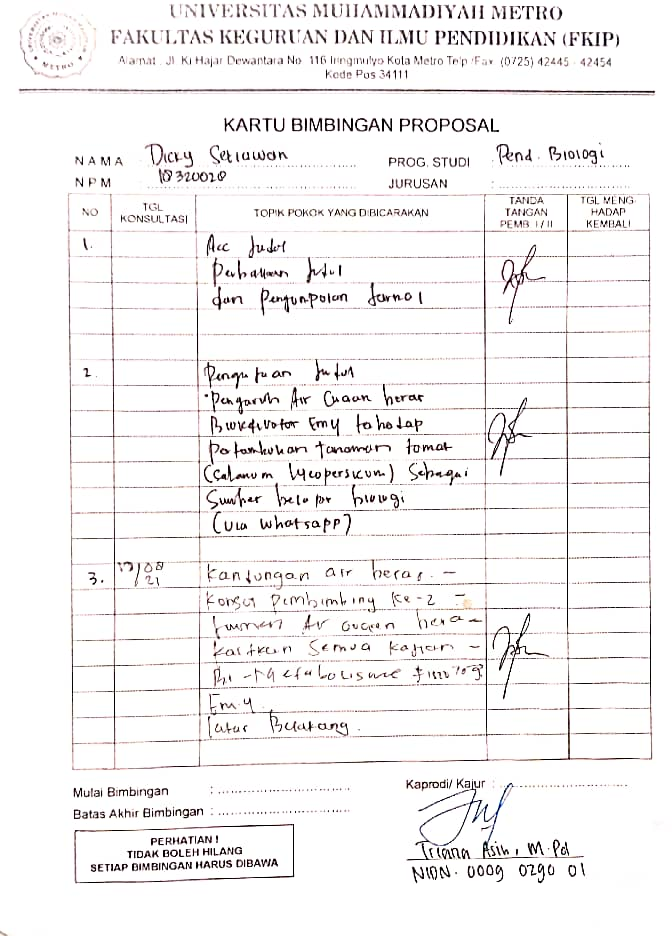 UNIVERSITAS MUHAMMADIYAH METRO
FAKULTAS KEGURUAN DAN ILMU PENDIDIKAN (FKIP)
Alamat : Jl. Ki Hajar Dewantara No. 116 Iringmulyo Kota Metro Telp./Fax. (0725) 42445 - 42454
Kode Pos 34111
KARTU BIMBINGAN PROPOSAL
NAMA Dicky Setiawan PROG. STUDI : Pend. Biologi
NPM 18320020 JURUSAN :
NO TGL KONSULTASI TOPIK POKOK YANG DIBICARAKAN TANDA TANGAN PEMB I / II TGL MENG HADAP KEMBALI
1. Acc Judul
Perbaikan Judul
dan Pengumpulan Jurnal
2. Pengajuan Judul
"Pengaruh Air Cucian beras
Bioaktivator Em4 tehadap
Pertumbuhan tanaman tomat
(Solanum lycopersicum) Sebagai
Sumber belajar biologi
(via whatsapp)
3. 17/08 21 Kandungan air beras. -
Konsul Pembimbing Ke-2 -
Air Cucian beras
Kaitkan Semua Kajian -
Em4
latar Belakang.
Mulai Bimbingan :
Batas Akhir Bimbingan :
Kaprodi/ Kajur :
PERHATIAN !
TIDAK BOLEH HILANG
SETIAP BIMBINGAN HARUS DIBAWA
Triana Asih, M.Pd
NIDN. 0009 0290 01